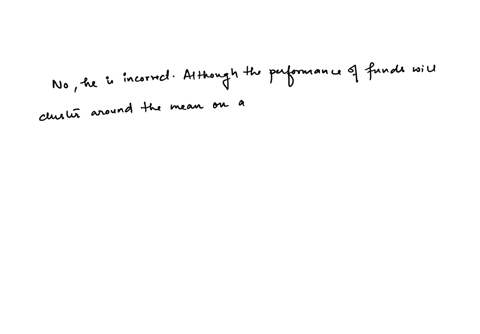 No, he is incorrect. Although the performance of funds will
cluster around the mean on a